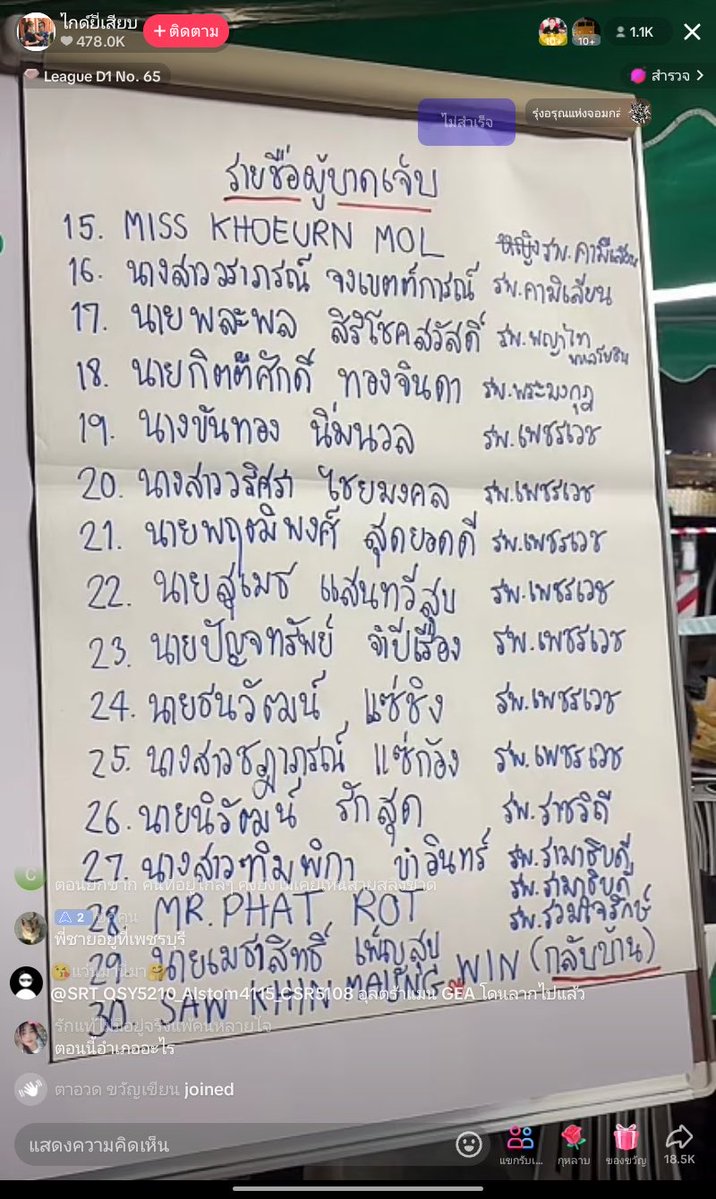 ไกด์ยี่เสียบ
478.0K
+ ติดตาม
10+
10+
1.1K
League D1 No. 65
สำรวจ
ไม่สำเร็จ
รุ่งอรุณแห่งจอมกล
รายชื่อผู้บาดเจ็บ
15. MISS KHOEURN MOL รพ.คามิลเลียน
16. นางสาววราภรณ์ จงเขตต์การณ์ รพ.คามิเลียน
17. นายพละพล สิริโชคสวัสดิ์ รพ.พญาไท
พหลโยธิน
18. นายกิตติศักดิ์ ทองจินดา รพ.พระมงกุฎ
19. นางขันทอง นิ่มนวล รพ.เพชรเวช
20. นางสาววริศรา ไชยมงคล รพ.เพชรเวช
21. นายพฤฒิพงศ์ สุดยอดดี รพ.เพชรเวช
22. นายสุเมธ แสนทวีสุข รพ.เพชรเวช
23. นายปัญจทรัพย์ จำปีเรือง รพ.เพชรเวช
24. นายธนวัฒน์ แซ่ซิง รพ.เพชรเวช
25. นางสาวชฎาภรณ์ แซ่ก๊อง รพ.เพชรเวช
26. นายนิวัฒน์ รักสุด รพ.ราชวิถี
27. นางสาวทิมพิกา ขำอินทร์ รพ.รามาธิบดี
28. MR. PHAT ROT รพ.รามาธิบดี
29. นายเมธาสิทธิ์ เพ็ญสุข รพ.รวมใจรักษ์
30. SAW WIN (กลับบ้าน)
C
2
พี่ชายอยู่ที่เพชรบุรี
@SRT_QSY5210_Alstom4115_CSR5108 อุลตร้าแมน GEA โดนลากไปแล้ว
ตอนนี้อำเภออะไร
ตาอวด ขวัญเขียน joined
แสดงความคิดเห็น
แขกรับเ...
กุหลาบ
ของขวัญ
18.5K